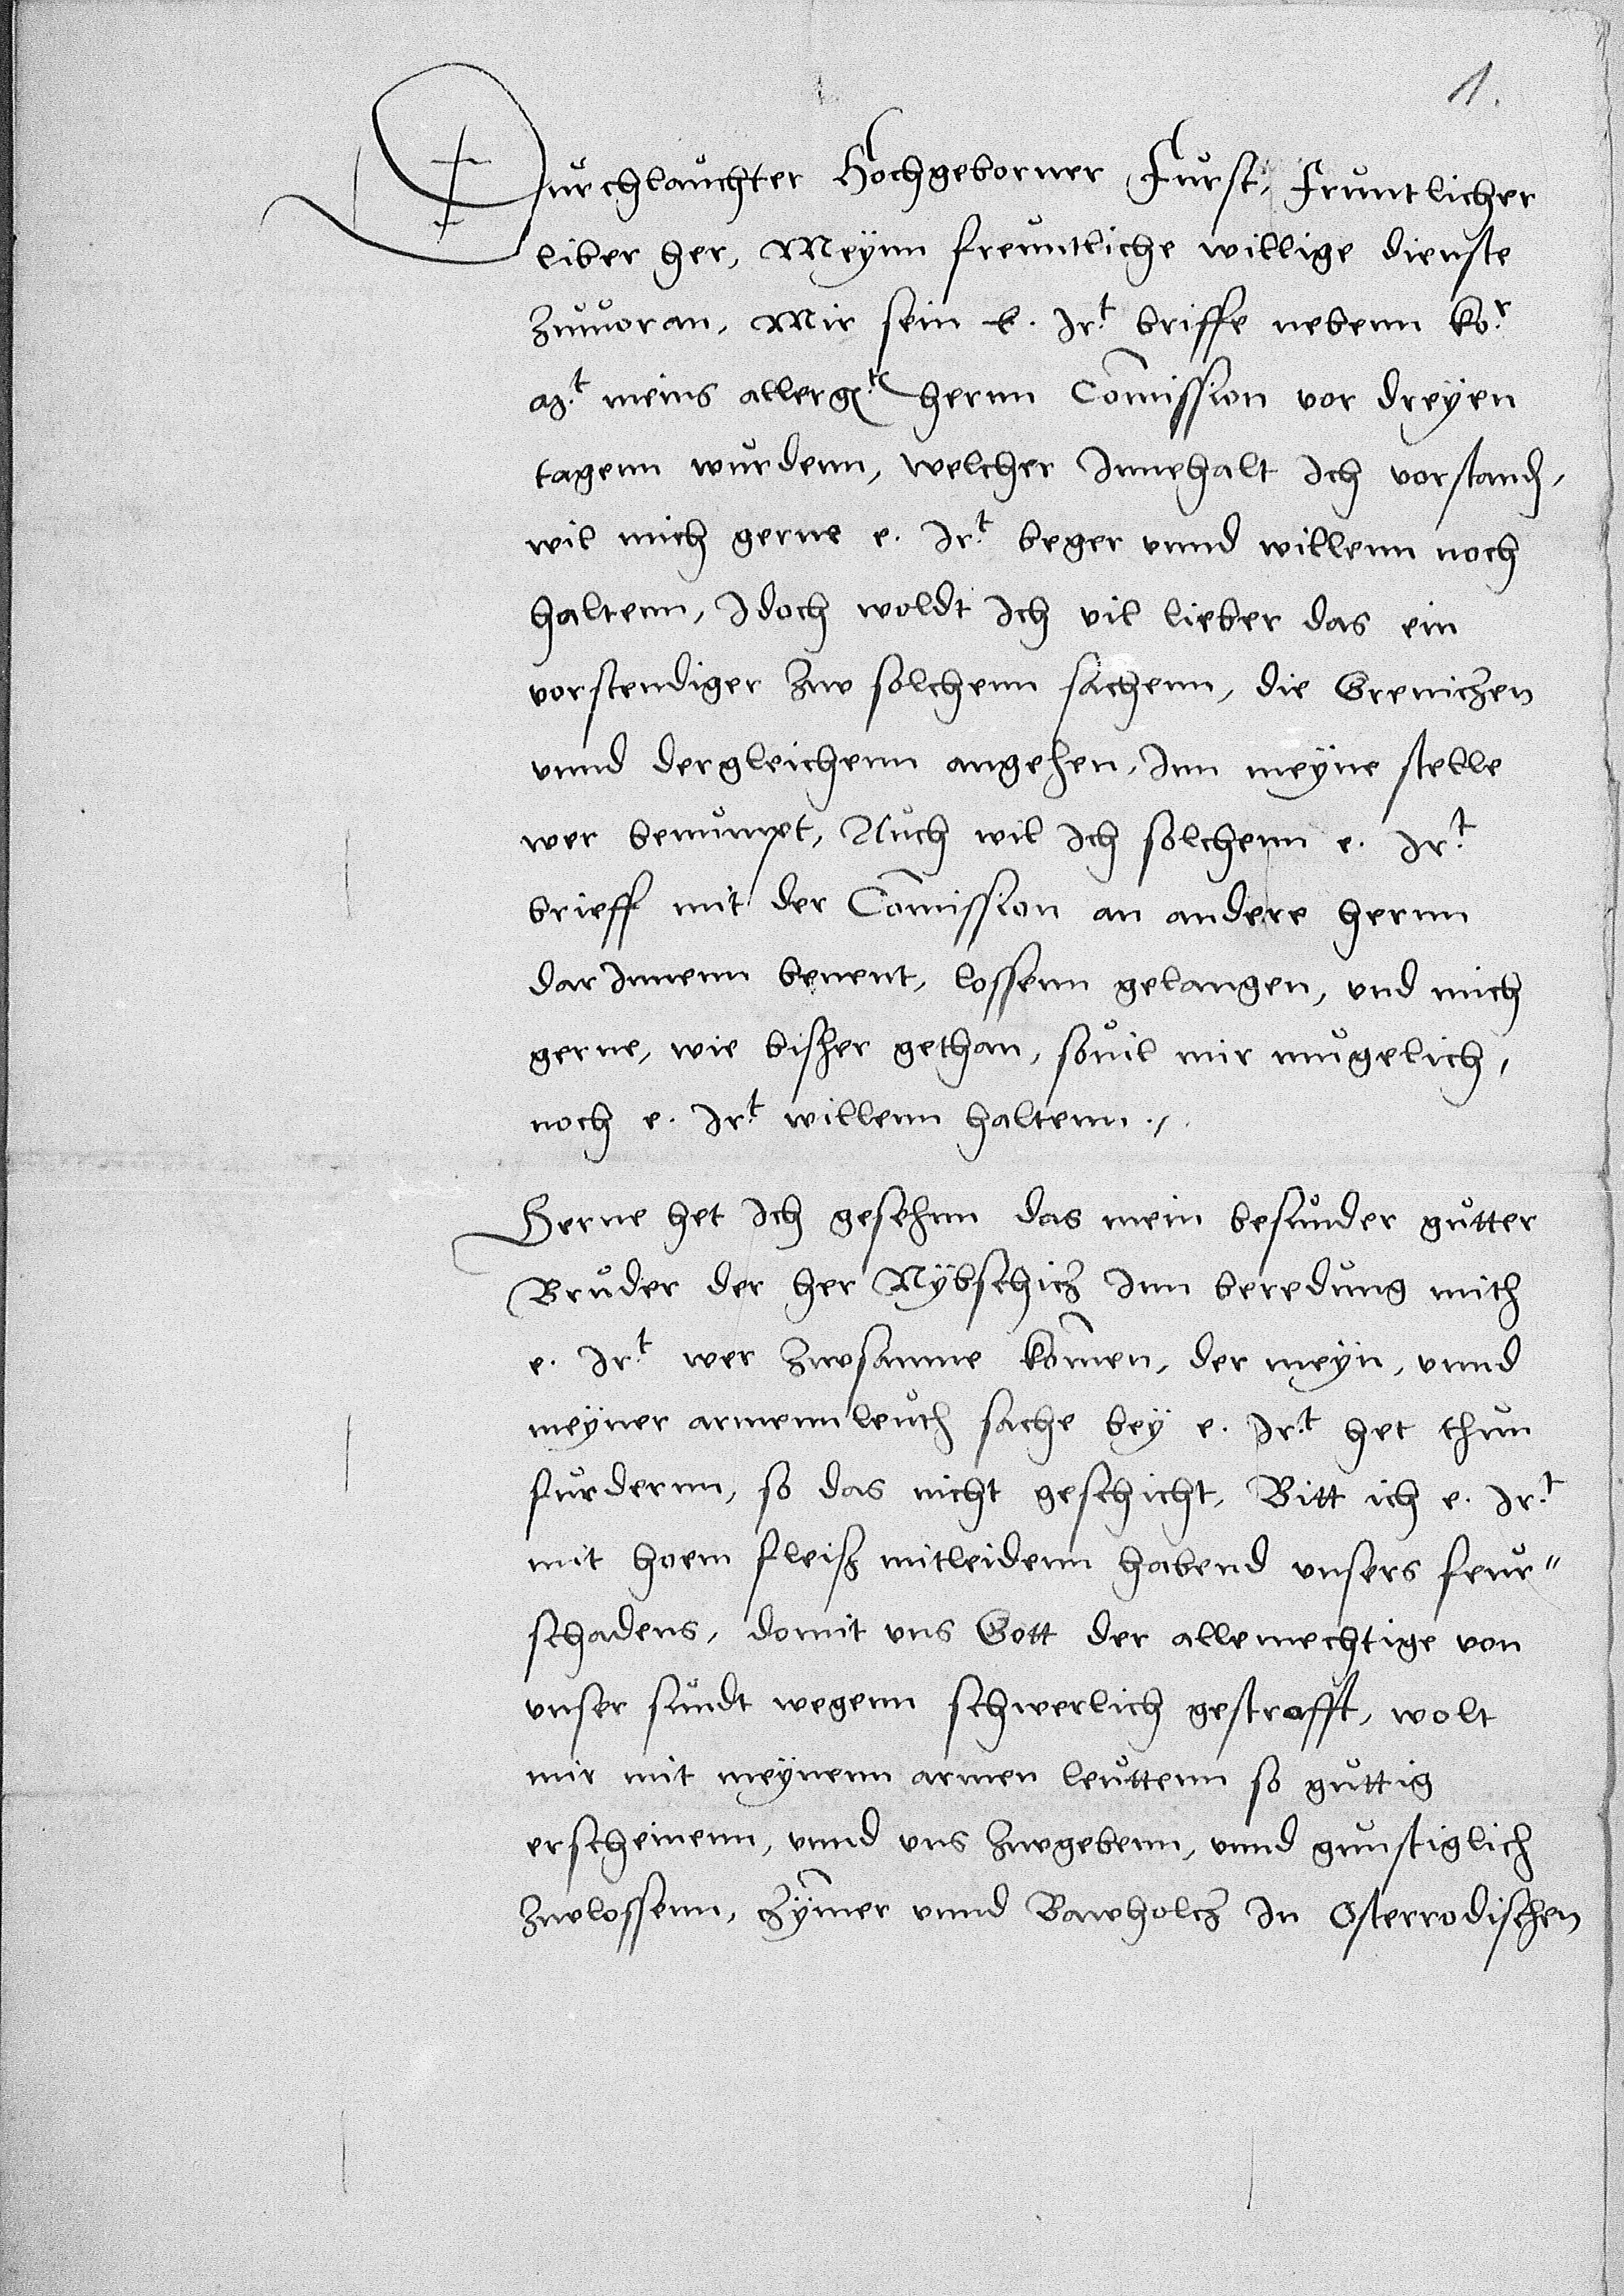 1.
Durchlauchter Hochgeborner Furst, Fruntlicher
liber her, Meynn freuntliche willige dienste
zuuoran, Mir sein e. Irt. briffe nebenn kor.
mt. meins allergten hernn Comission vor dreyen
tagenn wurdenn, welcher Innehalt Ich vorstand,
wil mich gerne e. Irt. beger vnnd willenn noch
haltenn, Idoch woldt Ich vil lieber das ein
vorstendiger zw solchenn sachenn, die Greniczen
vnnd dergleichenn angehen, Inn meyne stelle
wer benumpt, Auch wil Ich solchenn e. Irt.
brieff mit der Comission an andere hernn
dar Innenn benent, lossenn gelangen, vnd mich
gerne, wie bisher gethan, souil mir mugelich,
noch e. Irt. willenn haltenn.
Gerne het Ich gesehnn das mein besunder gutter
Bruder der her Nybschicz Inn beredung mith
e. Irt. wer zwsamme komen, der meyn, vnnd
meyner armenn leuth sache bey e. Irt. het thun
furdernn, so das nicht geschicht, Bitt ich e. Irt.
mit hoem fleiß mitleidenn habend vnsers feur"
schadens, domit vns Gott der allmechtige von
vnser sundt wegenn schwerlich gestrafft, wolt
mir mit meynenn armen leuttenn so guttig
erscheinenn, vnnd vns zwgebenn, vnnd gunstiglich
zwlossenn, czymer vnnd Bawholcz In Osterrodischen